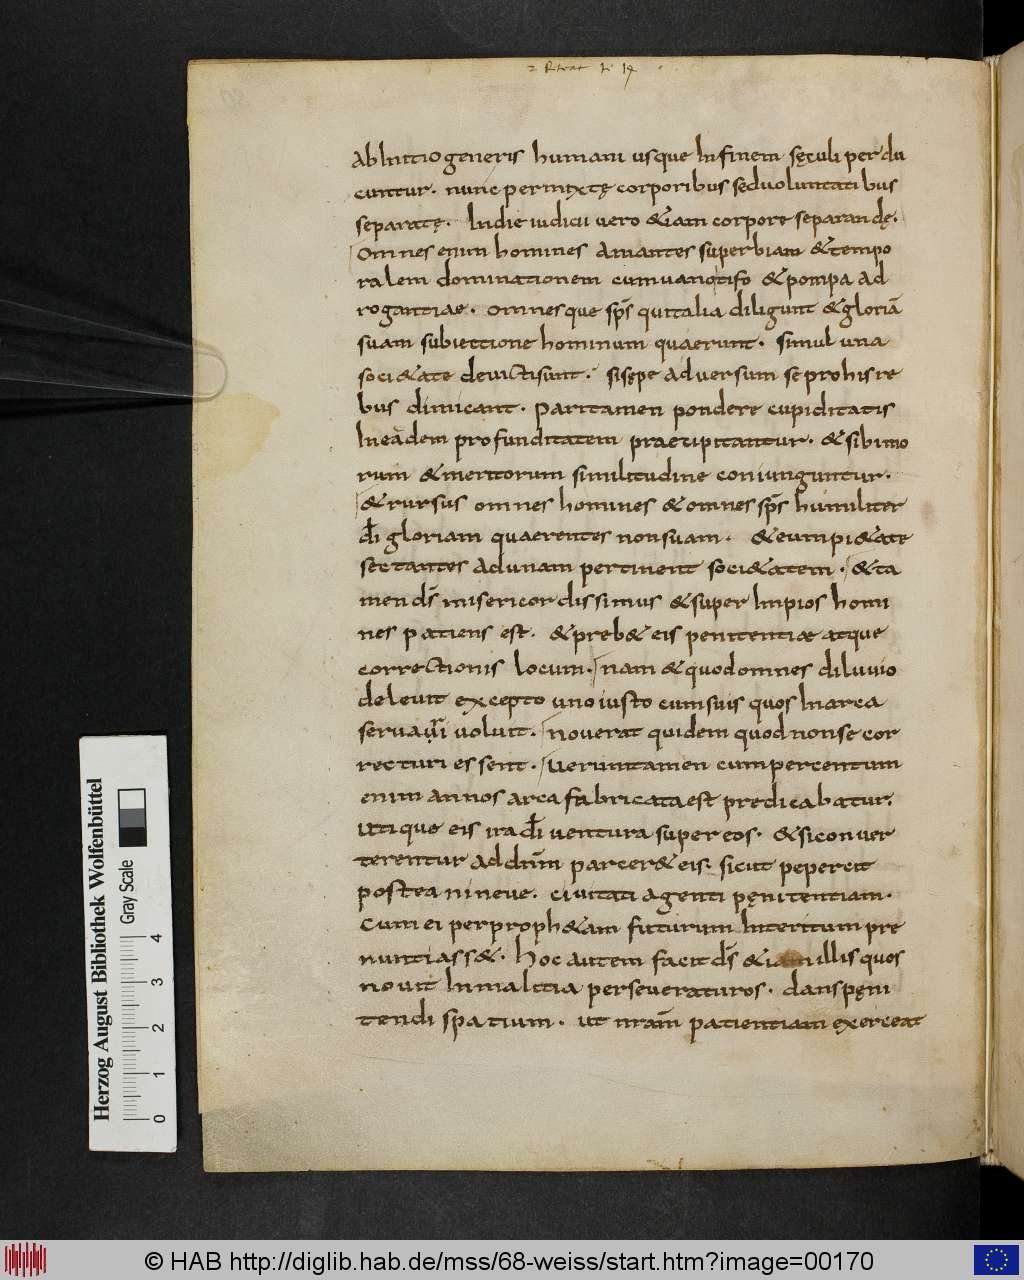 AbInitio generis humani usque Infinem sęculi perdu
cuntur. nunc permixtę corporibus sed voluntatibus
separatę. Indie iudicii vero &iam corpore separandę.
Omnes enim homines amantes superbiam &tempo
ralem dominationem cumvanotifo &pompa ad
rogantiae. omnesque sp̄s quitalia diligunt &gloriā
suam subiectione hominum quaerunt. simul una
soci&ate devictisunt. sisępe adversum seprohisre
bus dimicant. paritamen pondere cupiditatis
Ineadem profunditatem praecipitantur. &sibimo
rum &meritorum similitudine coniunguntur.
&rursus omnes homines &omnes sp̄s humiliter
d̄i gloriam quaerentes nonsuam. &eumpi&ate
sectantes adunam pertinent soci&atem. &ta
men d̄s misericordissimus &super Impios homi
nes patiens est. &preb& eis penitentiae atque
correctionis locum. nam &quodomnes diluvio
delevit excepto uno iusto cumsuis quos Inarca
servari voluit. noverat quidem quod nonse cor
recturi essent. Veruntamen cumpercentum
enim annos arca fabricataest predicabatur.
utique eis ira d̄i ventura supereos. &siconver
terentur add̄nm parcer& eis. sicut pepercit
postea nineve. civitati agenti pęnitentiam.
Cum ei perproph&am futurum Interitum pre
nuntiass&. hoc autem facit d̄s &iamillis quos
novit Inmalitia perseveraturos. danspęni
tendi spatium. ut nr̄am patientiam exerceat
Herzog August Bibliothek Wolfenbüttel
Gray Scale
0 1 2 3 4
© HAB http://diglib.hab.de/mss/68-weiss/start.htm?image=00170